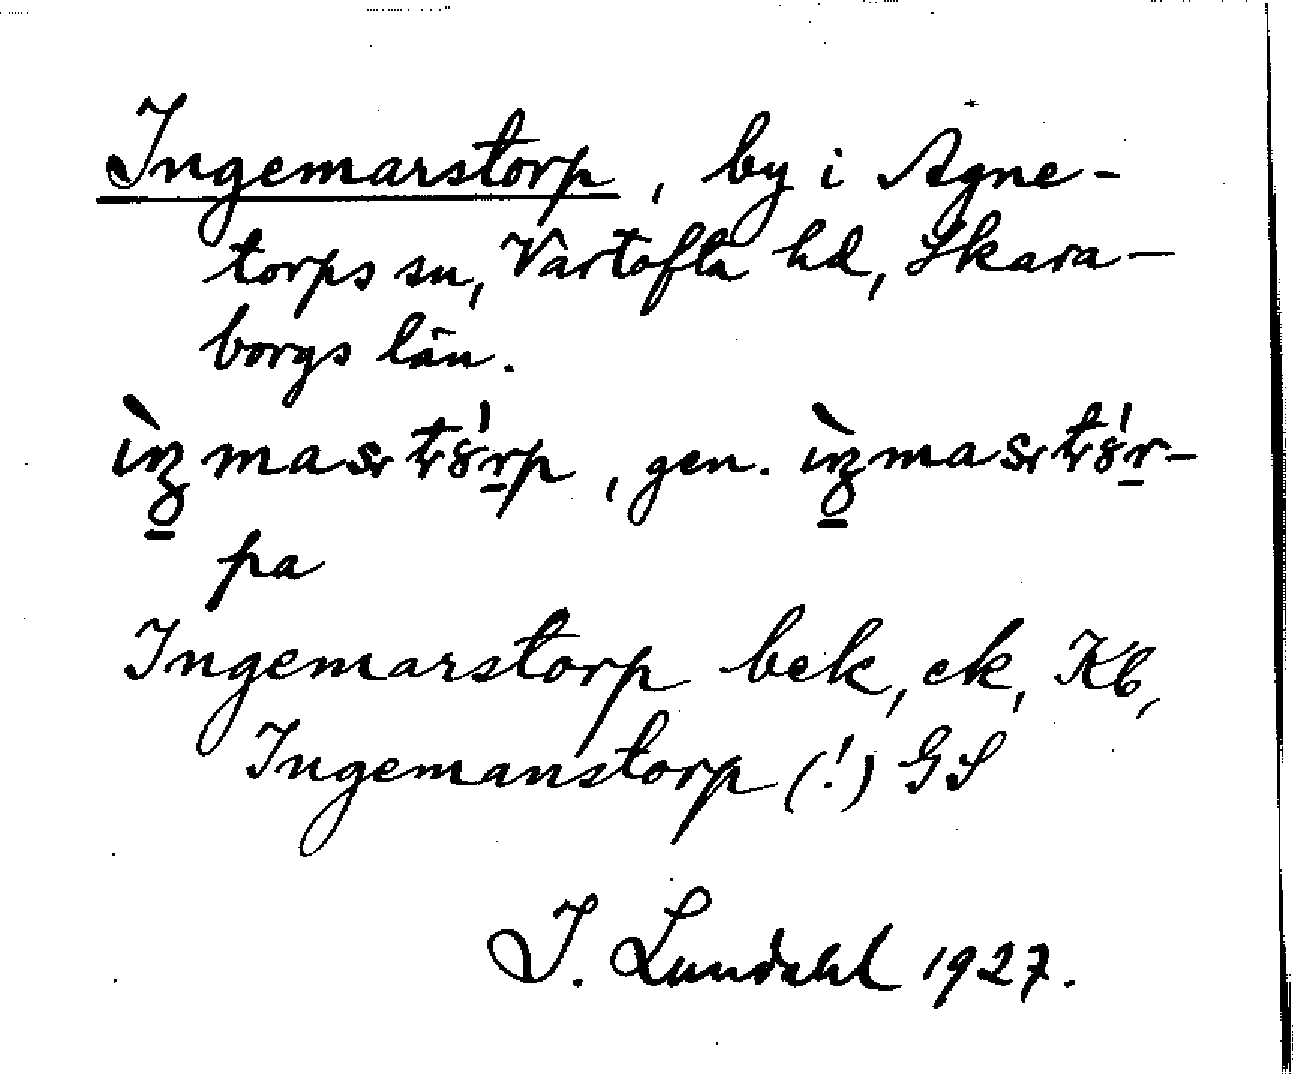 Ingemarstorp, by i Agne-
torps sn, Vartofta hd, Skara-
borgs län.
, gen.
pa
Ingemarstorp bek, ek, Kb,
Ingemanstorp (!) GS
I. Lundahl 1927.